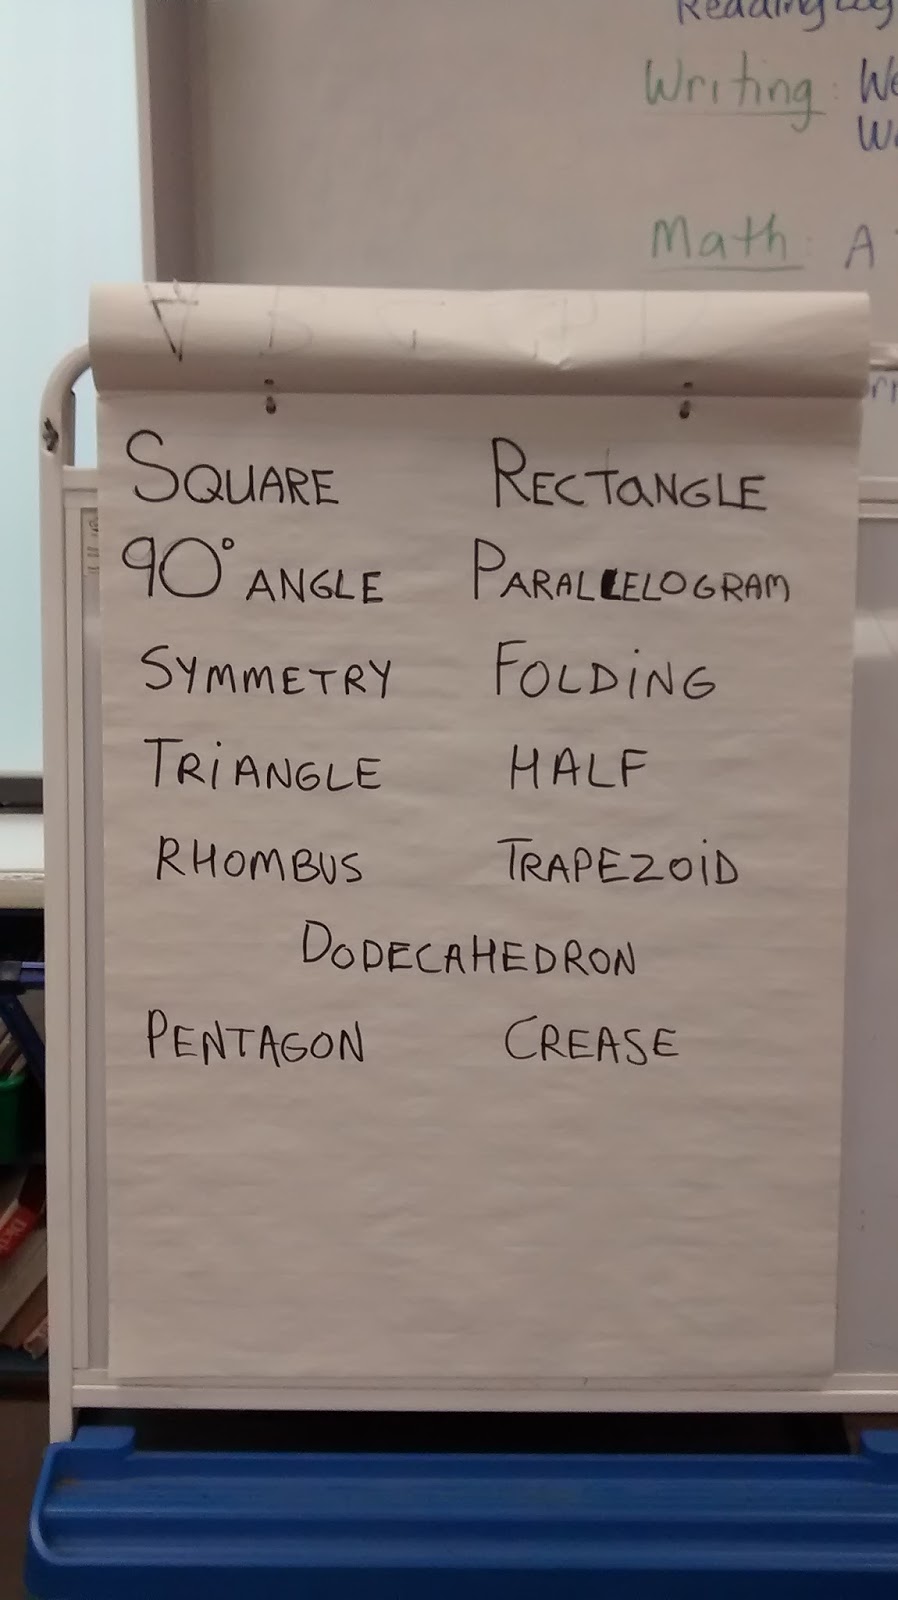 Writing:
Math: A
SQUARE RECTANGLE
90° ANGLE PARALLELOGRAM
SYMMETRY FOLDING
TRIANGLE HALF
RHOMBUS TRAPEZOID
DODECAHEDRON
PENTAGON CREASE